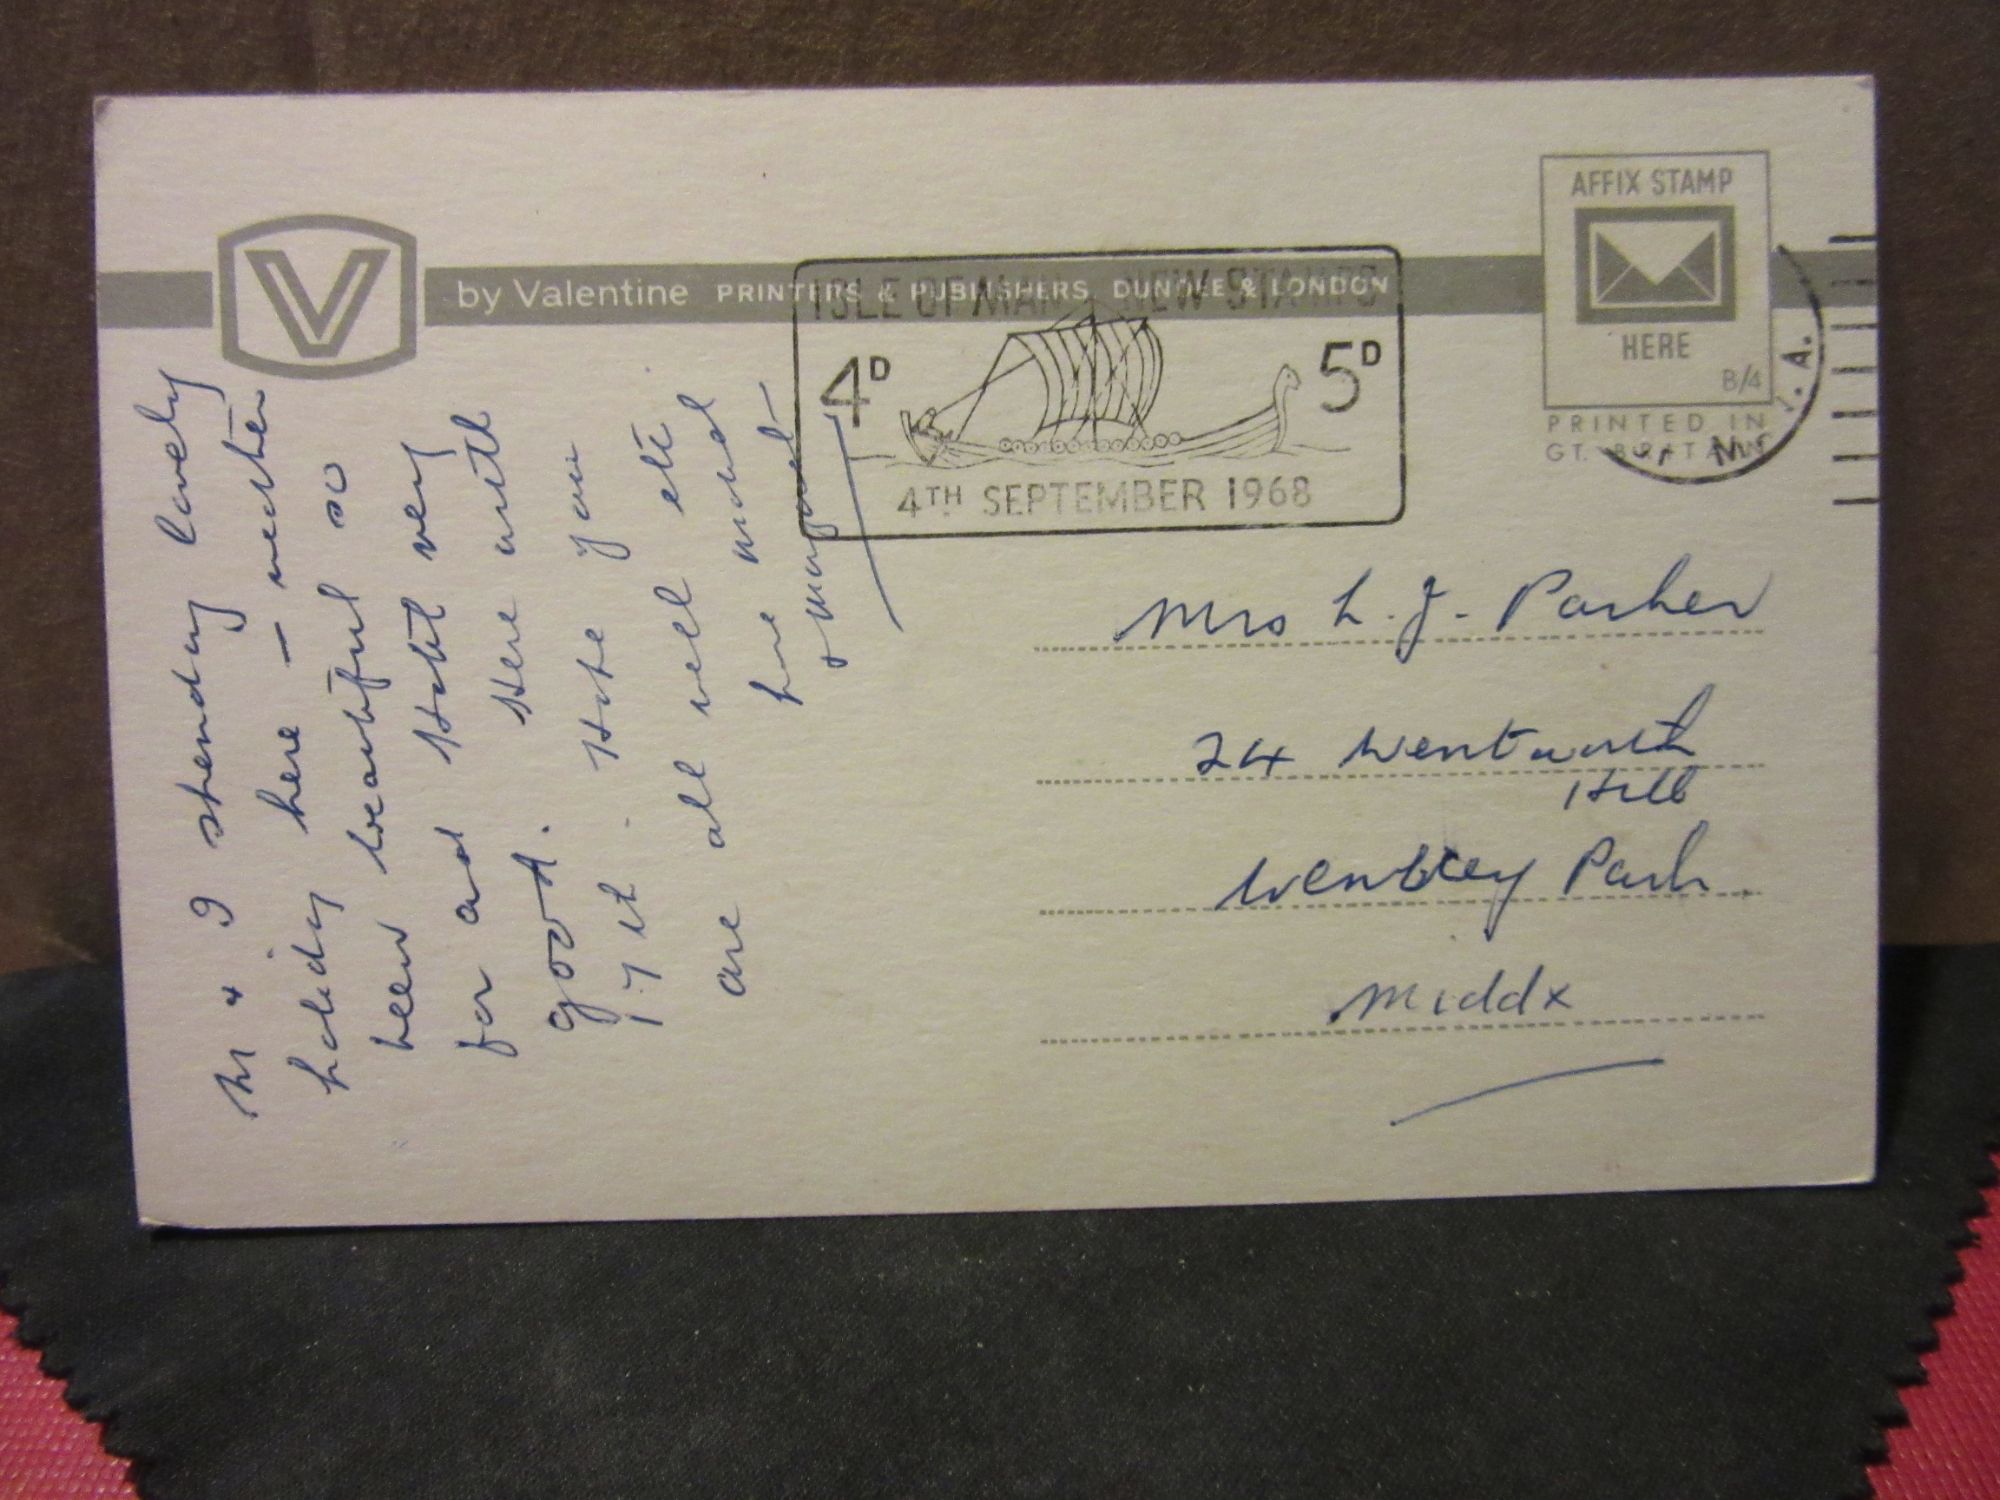 by Valentine PRINTERS & PUBLISHERS, DUNDEE & LONDON
ISLE OF MAN NEW STAMPS
4D 5D
4TH SEPTEMBER 1968
AFFIX STAMP
HERE
B/4
PRINTED IN
GT. BRITAIN
M & I spending lovely
holiday here - weather
been beautiful so
far and Hotel very
good. Here until
17th. Hope you
are all well etc.
Mrs L. J. Parker
24 Wentworth
Hill
Wembley Park
Middx